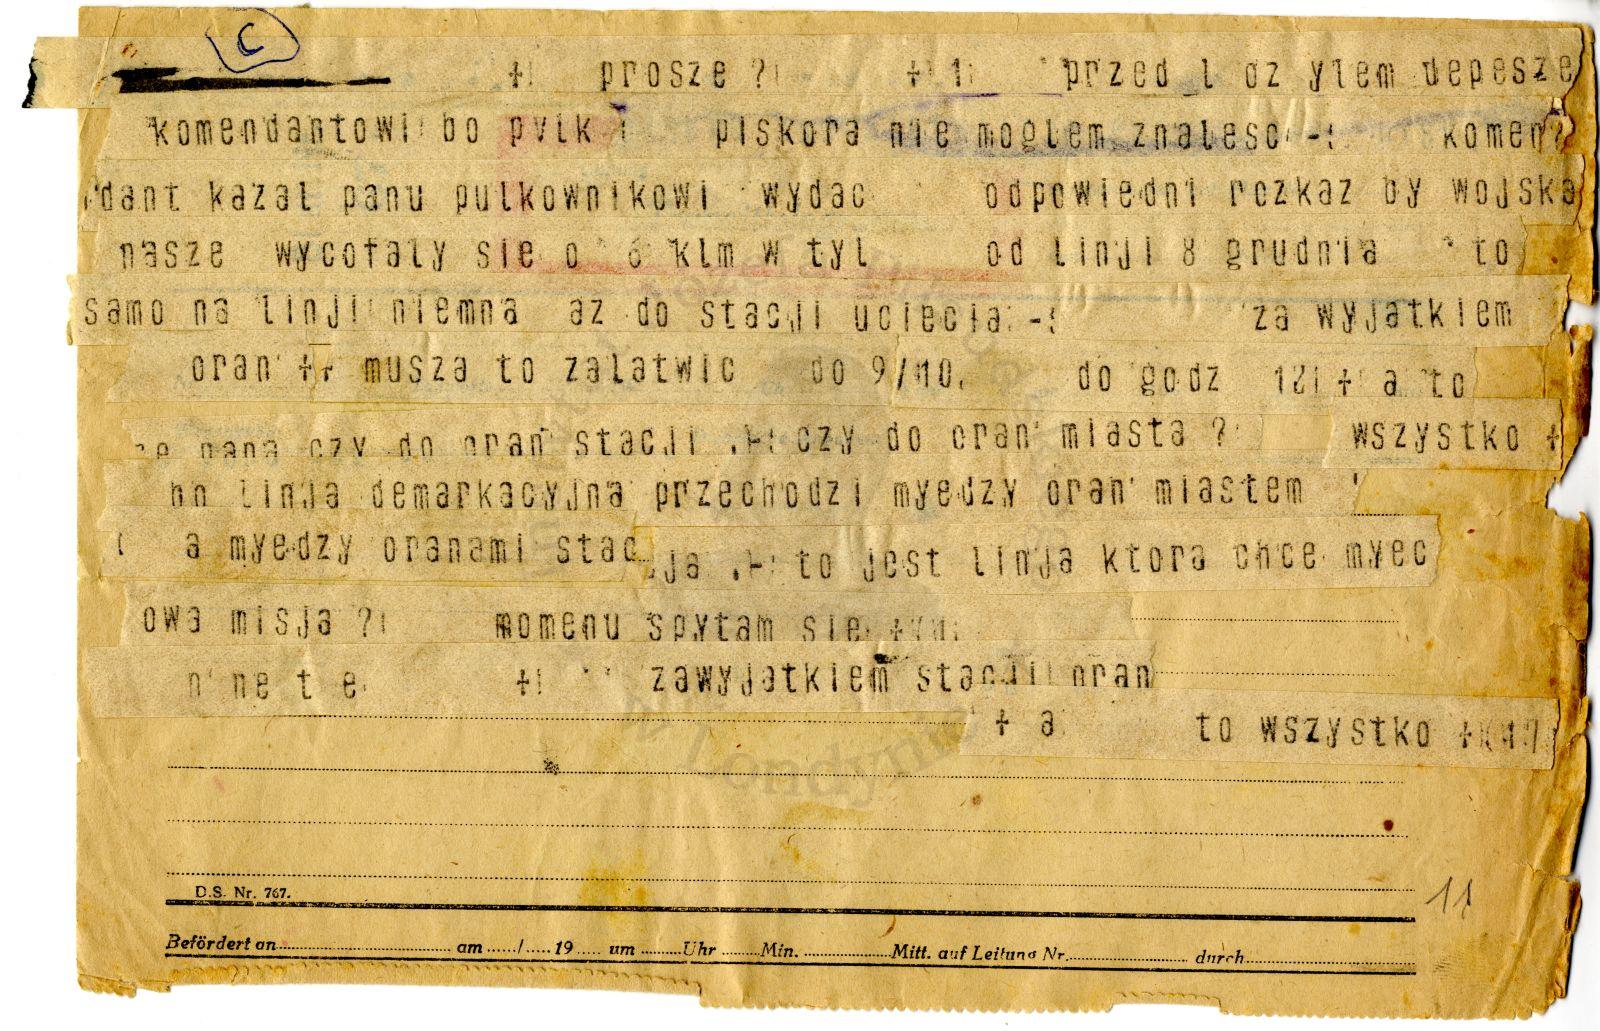 C
+ prosze ? + 1 przed l oz ylem depesze
komendantowi bo pvlk piskora nie moglem znalesc - komen?
dant kazal panu pulkownikowi wydac odpowiedni rozkaz by wojska
nasze wycofaly sie o 6 klm w tyl od linji 8 grudnia to
samo na linji niemna az do stacji uciecia - za wyjatkiem
oran ++ musza to zalatwic do 9/10. do godz 12 + a to
pana czy do oran stacji czy do oran miasta ? wszystko +
linja demarkacyjna przechodzi myedzy oran miastem
a myedzy oranami stac ja to jest linja ktora chce myec
owa misja ? momenu spytam sie +
n ne t e + zawyjatkiem stacji oran
+ a to wszystko +
w Londynie
D.S. Nr. 767.
11
Befördert an am / 19 um Uhr Min. Mitt. auf Leitung Nr. durch